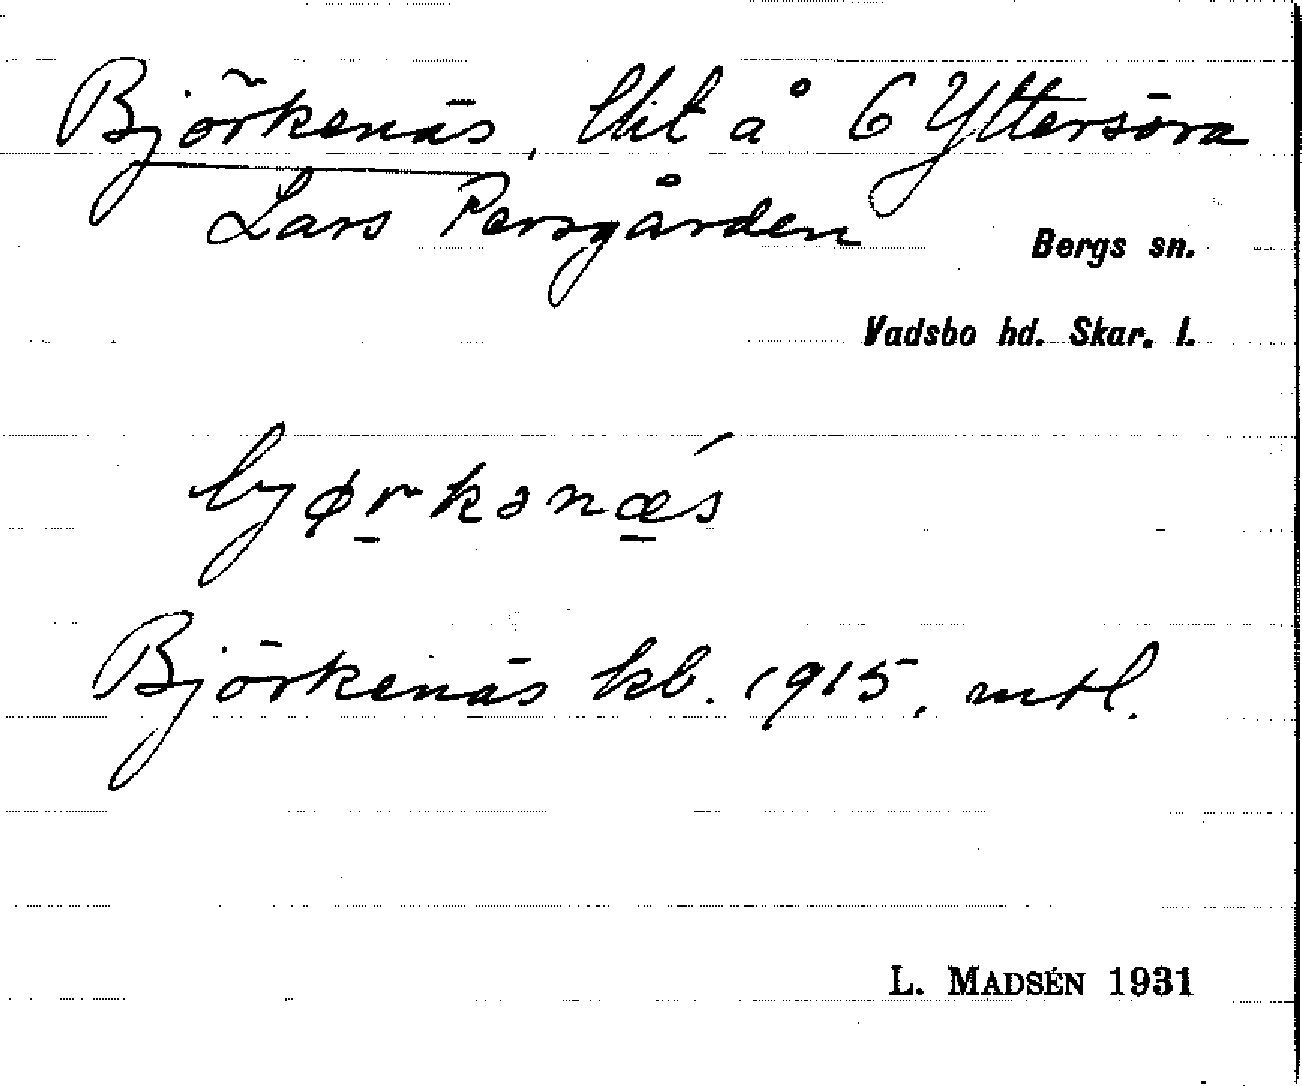 Björkenäs, lht å 6 Yttersöra
Lars Persgården
Bergs sn.
Vadsbo hd. Skar. l.
bjørkənæ´s
Björkenäs kb. 1915, mtl.
L. MADSÉN 1931